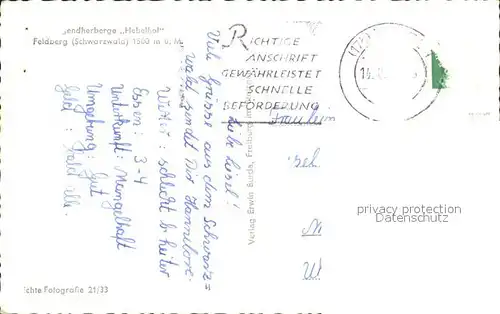 endherberge „Hebelhof"
Feldberg (Schwarzwald) 1500 m ü. M.
RICHTIGE
ANSCHRIFT
GEWÄHRLEISTET
SCHNELLE
BEFÖRDERUNG
Liebe Liesel!
Viele Grüsse aus dem Schwarz=
wald sendet Dir Hannelore.
Wetter: schlecht b. heiter
Essen: 3-4
Unterkunft: Mangelhaft
Umgebung: Gut
Geld: Bald alle.
Fräulein
Verlag Erwin Burda, Freiburg
chte Fotografie 21/33
privacy protection
Datenschutz